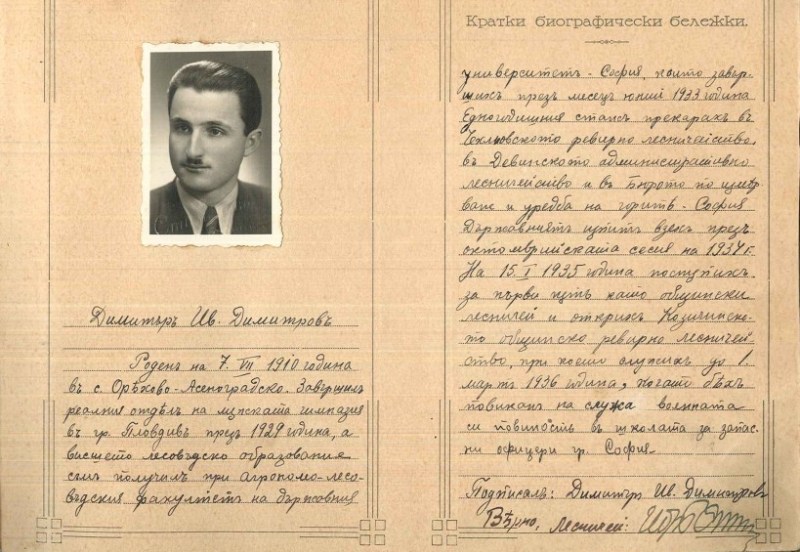 Димитъръ Ив. Димитровъ
Роденъ на 7. VII 1910 година
въ с. Орѣхово-Асеноградско. Завършилъ
реалния отдѣлъ на мѫжката гимназия
въ гр. Пловдивъ презъ 1929 година, а
висшето лесовъдско образование
съмъ получилъ при Агрономо-лесо-
въдския факултетъ на държавния
Кратки биографически бележки.
университетъ - София, който завър-
шихъ презъ месецъ юний 1933 година
Едногодишния стажъ прекарахъ въ
ревирно лесничейство,
въ Девинското административно
лесничейство и въ Бюрото по измѣр
ване и уредба на горитѣ - София
Държавниятъ изпитъ взехъ презъ
октомврийската сесия на 1934 г.
На 15. I 1935 година постѫпихъ
за първи пѫть като общински
лесничей и открихъ Козичинско-
то общинско ревирно лесничей-
ство, при което служихъ до 1.
мартъ 1936 година, когато бѣхъ
повиканъ на служа военната
си повиность въ школата за запас-
ни офицери гр. София -
Подписалъ: Димитъръ Ив. Димитровъ
Вѣрно, Лесничей: